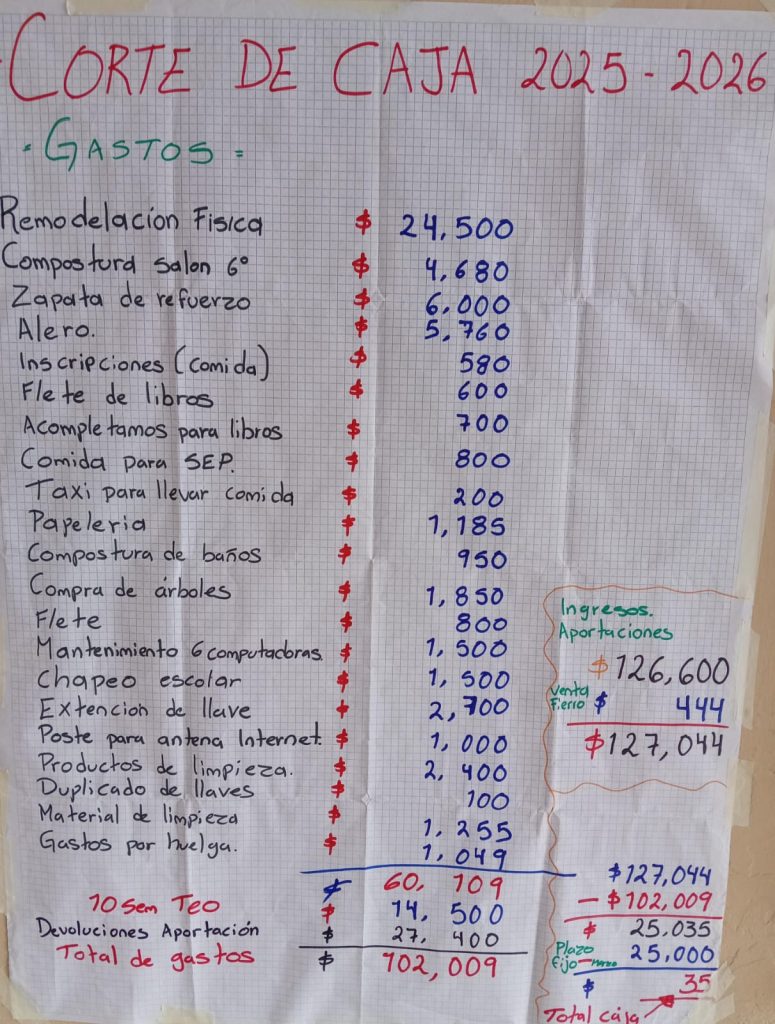 CORTE DE CAJA 2025-2026
- GASTOS =
Remodelacion Fisica $ 24,500
Compostura salon 6° $ 4,680
Zapata de refuerzo $ 6,000
Alero. $ 5,760
Inscripciones (comida) $ 580
Flete de libros $ 600
Acompletamos para libros $ 700
Comida para SEP. $ 800
Taxi para llevar comida $ 200
Papeleria $ 1,185
Compostura de baños $ 950
Compra de árboles $ 1,850
Flete $ 800
Mantenimiento 6 computadoras. $ 1,500
Chapeo escolar $ 1,500
Extencion de llave $ 2,700
Poste para antena Internet. $ 1,000
Productos de limpieza. $ 2,400
Duplicado de llaves $ 100
Material de limpieza $ 1,255
Gastos por huelga. $ 1,049
$ 60,109
10 Sem Teo $ 14,500
Devoluciones Aportación $ 27,400
Total de gastos $ 102,009
Ingresos.
Aportaciones
$126,600
Venta Fierro $ 444
$127,044
$127,044
- $102,009
$ 25,035
Plazo fijo 25,000
$ 35
Total caja